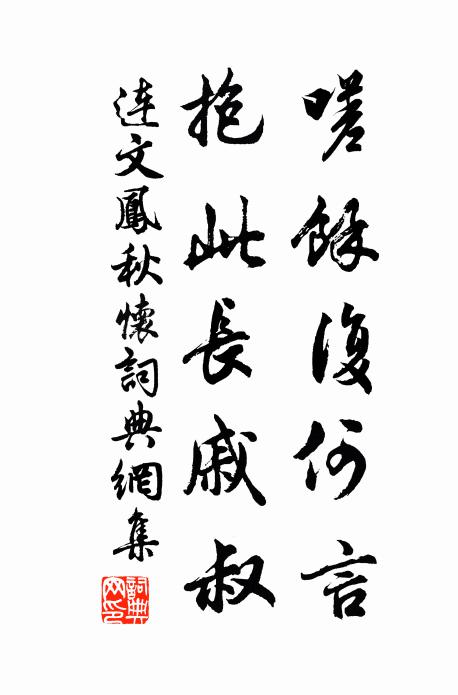 嗟餘復何言
抱此長戚叔
連文鳳秋懷詞典網集
詞典網印